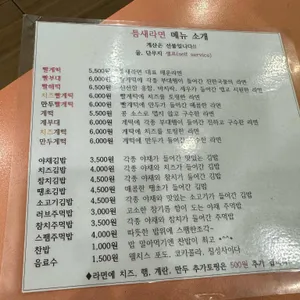 틈새라면 메뉴 소개
계산은 선불입니다!!
물, 단무지 셀프(self service)
빨계떡 5,500원 틈새라면 대표 매운라면
빨부대 6,000원
빨해떡 6,000원
치즈빨계떡 6,000원 빨계떡에 치즈를 토핑한 라면
만두빨계떡 6,000원 빨계떡에 만두가 들어간 매콤한 라면
계떡 5,500원
계부대 6,000원
치즈계떡 6,000원 계떡에 치즈를 토핑한 라면
만두계떡 6,000원 계떡에 만두가 들어간 라면
야채김밥 3,500원 각종 야채가 들어간 맛있는 김밥
치즈김밥 4,000원 각종 야채와 치즈가 들어간 김밥
참치김밥 4,500원 각종 야채와 참치가 들어간 김밥
땡초김밥 4,000원 매콤한 땡초가 들어간 김밥
소고기김밥 4,500원 각종 야채와 소고기가 들어간 김밥
러브주먹밥 3,000원 고소한 참기름 향이 도는 야채 주먹밥
참치주먹밥 3,500원 각종 야채와 참치가 들어간 주먹밥
스팸주먹밥 4,000원 따뜻한 밥위에 스팸한조각~
찬밥 1,000원 밥 말아먹기엔 찬밥이 최고 ^^*
음료수 1,500원 웰치스 포도, 코카콜라, 칠성사이다
♦라면에 치즈, 햄, 계란, 만두 추가토핑은 500원 추가